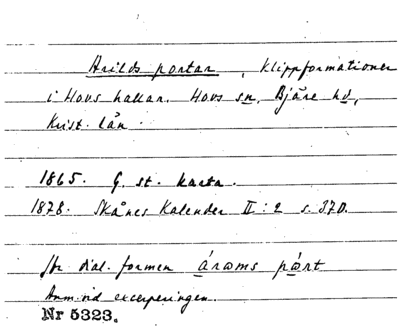 Arilds portar, Klippformationer
i Hovs hallar. Hovs sn, Bjäre hd,
Krist. län.
1865. G. st. karta.
1878. Skånes Kalender II:2 s. 370.
Jfr dial. formen árœms pǿrt
Anm. vid excerperingen.
Nr 5323.